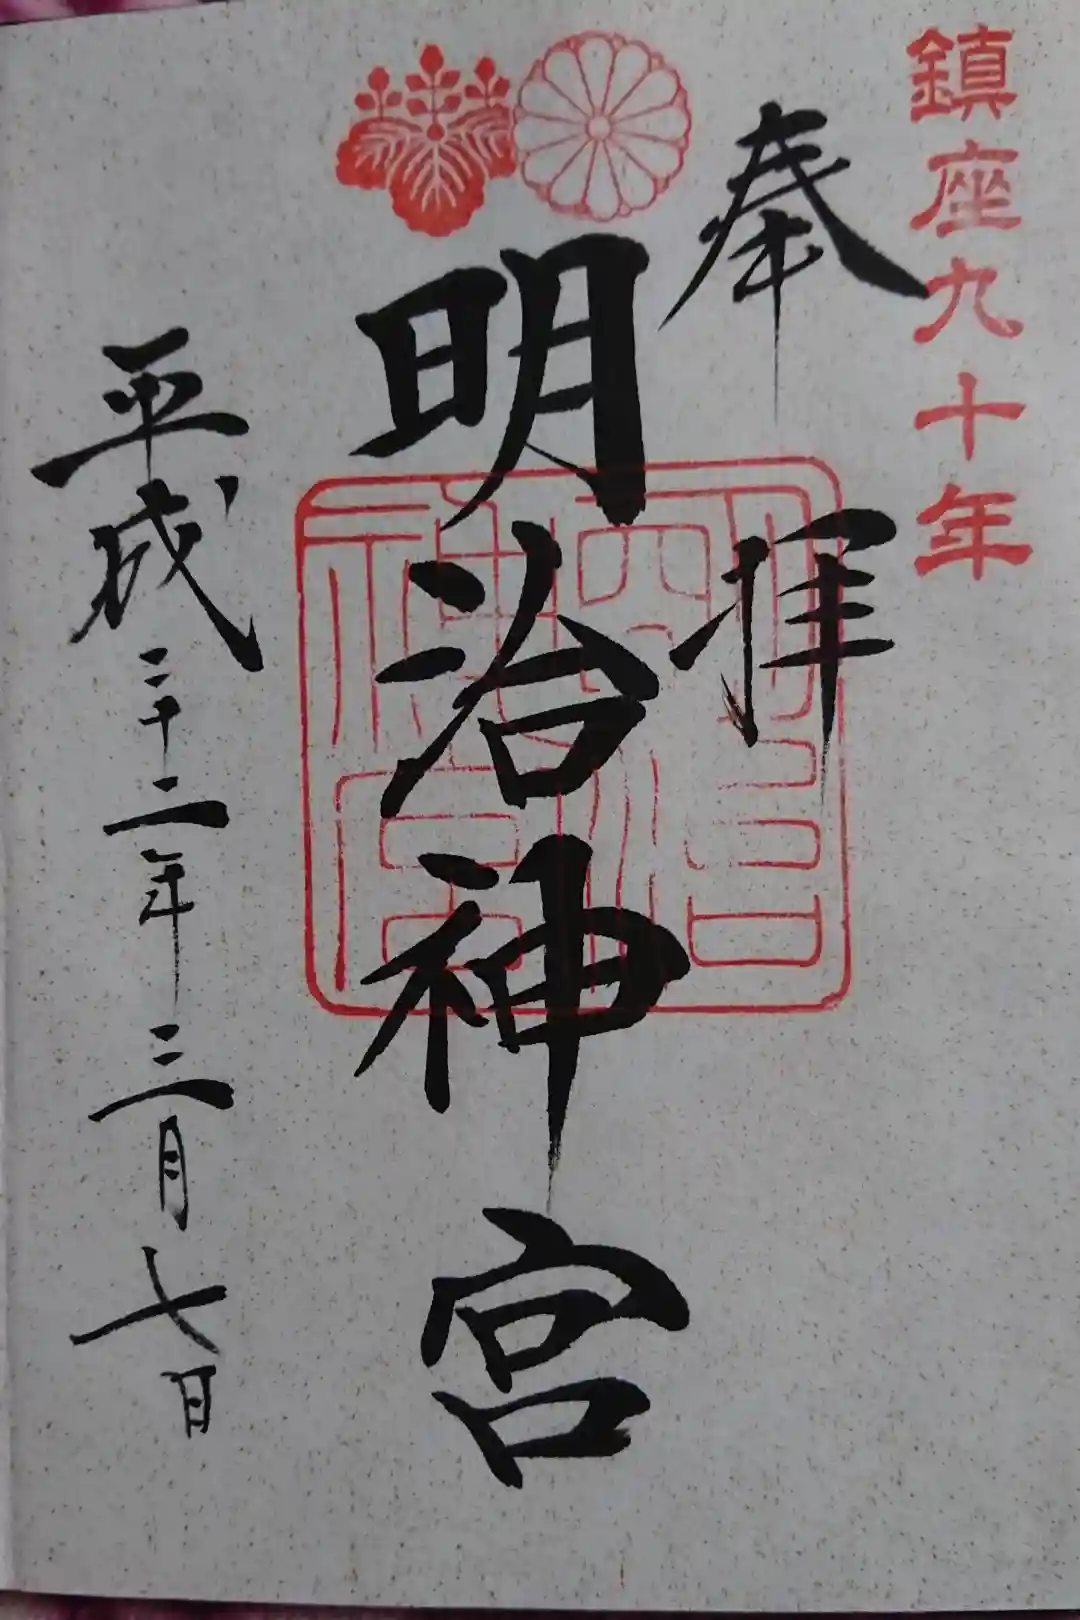 鎮座九十年
奉拝
明治神宮
平成二十二年三月七日
明治神宮